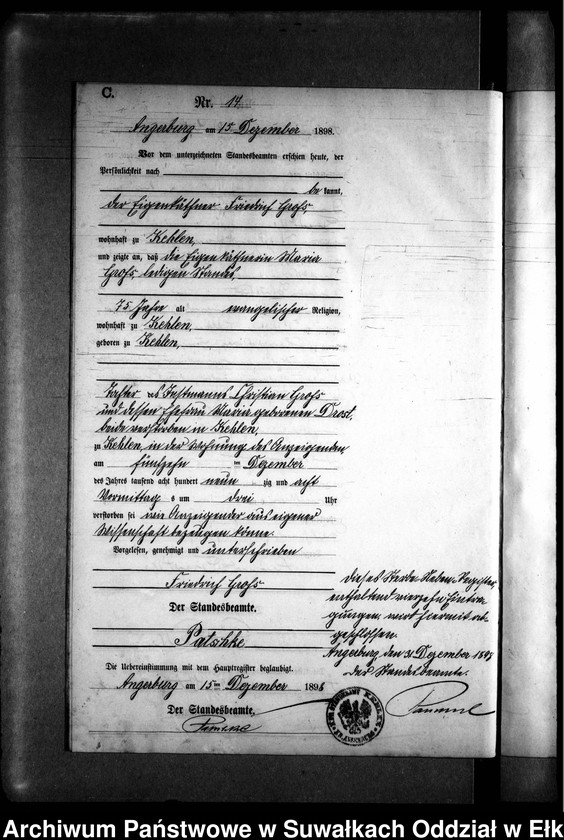 C.
Nr. 14.
Angerburg am 15. Dezember 1898.
Vor dem unterzeichneten Standesbeamten erschien heute, der
Persönlichkeit nach
be kannt,
der Eigenkäthner Friedrich Groß,
wohnhaft zu Kehlen,
und zeigte an, daß die Eigenkäthnerin Maria
Groß, ledigen Standes
75 Jahre alt evangelischer Religion,
wohnhaft zu Kehlen,
geboren zu Kehlen,
Tochter des Instmanns Christian Groß
und dessen Ehefrau Maria geborenen Drost,
beide verstorben in Kehlen,
zu Kehlen, in der Wohnung des Anzeigenden
am fünfzehn ten Dezember
des Jahres tausend acht hundert neun zig und acht
Vormittag s um drei Uhr
verstorben sei wie Anzeigender aus eigener
Wissenschaft bezeugen könne.
Vorgelesen, genehmigt und unterschrieben
Friedrich Groß
Der Standesbeamte.
Patschke
Die Uebereinstimmung mit dem Hauptregister beglaubigt.
Angerburg am 15ten Dezember 1898
Der Standesbeamte.
Dieses Sterbe Neben-Register,
enthaltend vierzehn Eintra
gungen wird hiermit ab
geschlossen.
Angerburg den 31 Dezember 1898
Der Standesbeamte.
Archiwum Państwowe w Suwałkach Oddział w Ełk